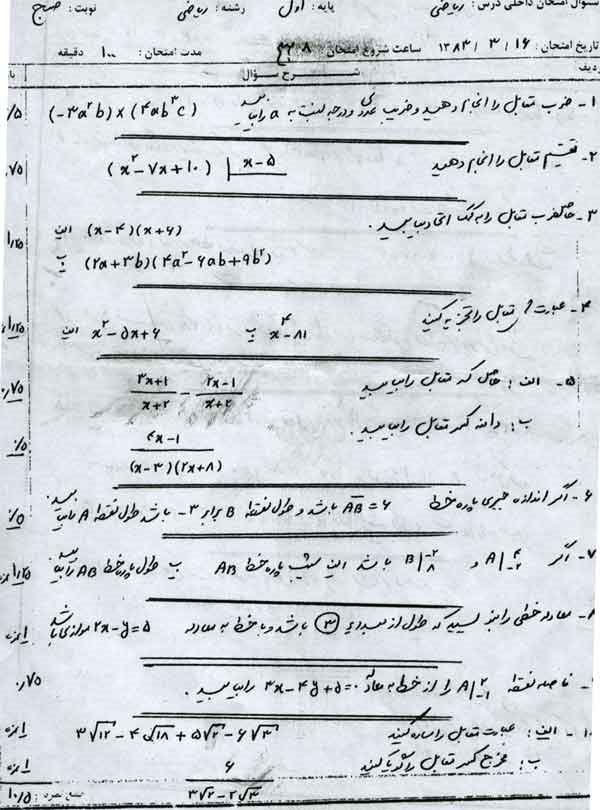 سئوال امتحان داخلی درس: ریاضی پایه: اول رشته: ریاضی نوبت: صبح
تاریخ امتحان: ۱۶ / ۳ / ۱۳۸۳ ساعت شروع امتحان ۸ مدت امتحان: ۱۰۰ دقیقه
ردیف شرح سؤال
۱- ضرب مقابل را انجام دهید و ضریب عددی و درجه نسبت به a را بیابید (-۳a²b) × (۴ab³c)
۲- تقسیم مقابل را انجام دهید (x²-۷x+۱۰) | x-۵
/۷۵
۳- حاصلضرب مقابل را به کمک اتحاد بیابید.
الف (x-۴)(x+۶)
ب (۲a+۳b)(۴a²-۶ab+۹b²)
۴- عبارت مقابل را تجزیه کنید
الف x²-۵x+۶ ب x⁴-۸۱
۵- الف: حاصل کسر مقابل را بیابید
(۳x+۱)/(x+۲) - (۲x-۱)/(x+۲)
۰/۷۵
ب: دامنه کسر مقابل را بیابید.
(۴x-۱)/((x-۳)(۲x+۸))
۶- اگر اندازه جبری پاره خط AB = ۶ باشد و طول نقطه B برابر ۳- باشد طول نقطه A را بیابید
۷- اگر A|۴ -۲ و B|-۲ ۸ باشد الف شیب پاره خط AB ب طول پاره خط AB را بیابید
۸- معادله خطی را بنویسید که طول از مبدا ۳ باشد و با خط به معادله ۲x-y=۵ موازی باشد
فاصله نقطه A|۲ -۱ را از خط به معادله ۳x-۴y+۵=۰ را بیابید.
۰/۷۵
۱۰- الف: عبارت مقابل را ساده کنید ۳√۱۲ - ۴√۱۸ + ۵√۲ - ۶√۳
ب: مخرج کسر مقابل را گویا کنید ۶/(۳√۲-۲√۳)
۱۰/۵